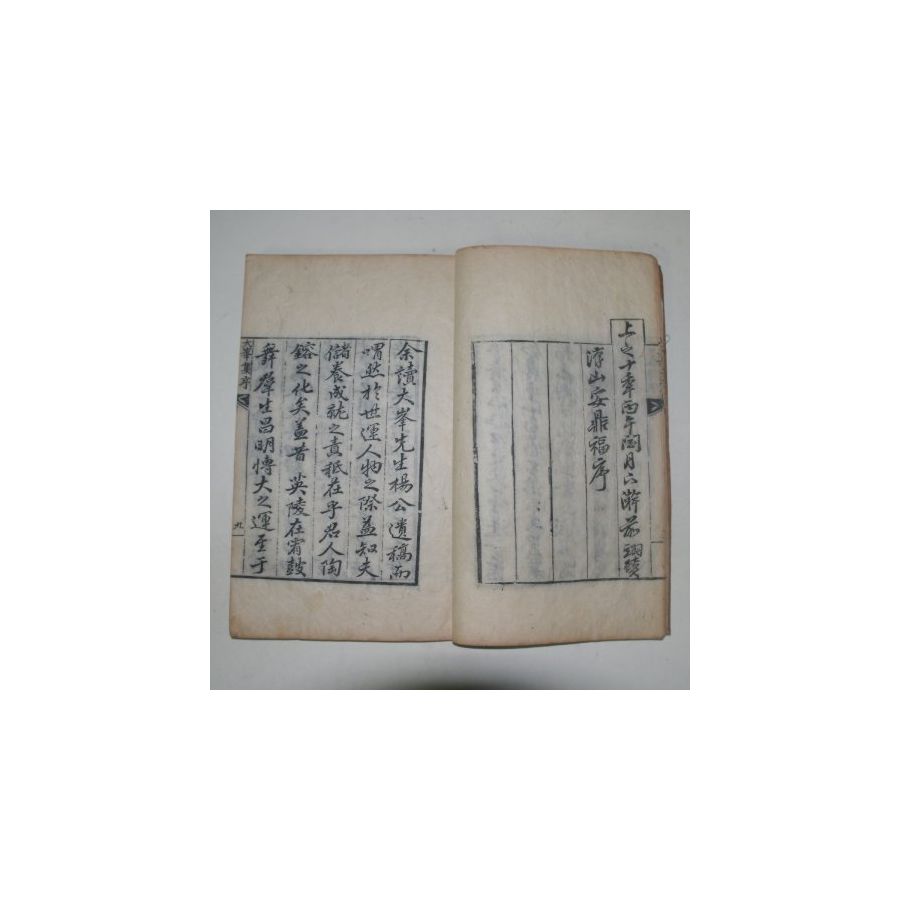 上之十年丙午閏月下澣前翊贊
漢山安鼎福序
余讀大峯先生楊公遺稿而
喟然於世運人物之際益知夫
儲養成就之責秪在乎君人陶
鎔之化矣蓋昔 英陵在宥鼓
舞羣生昌明博大之運至于
大峯集序
九